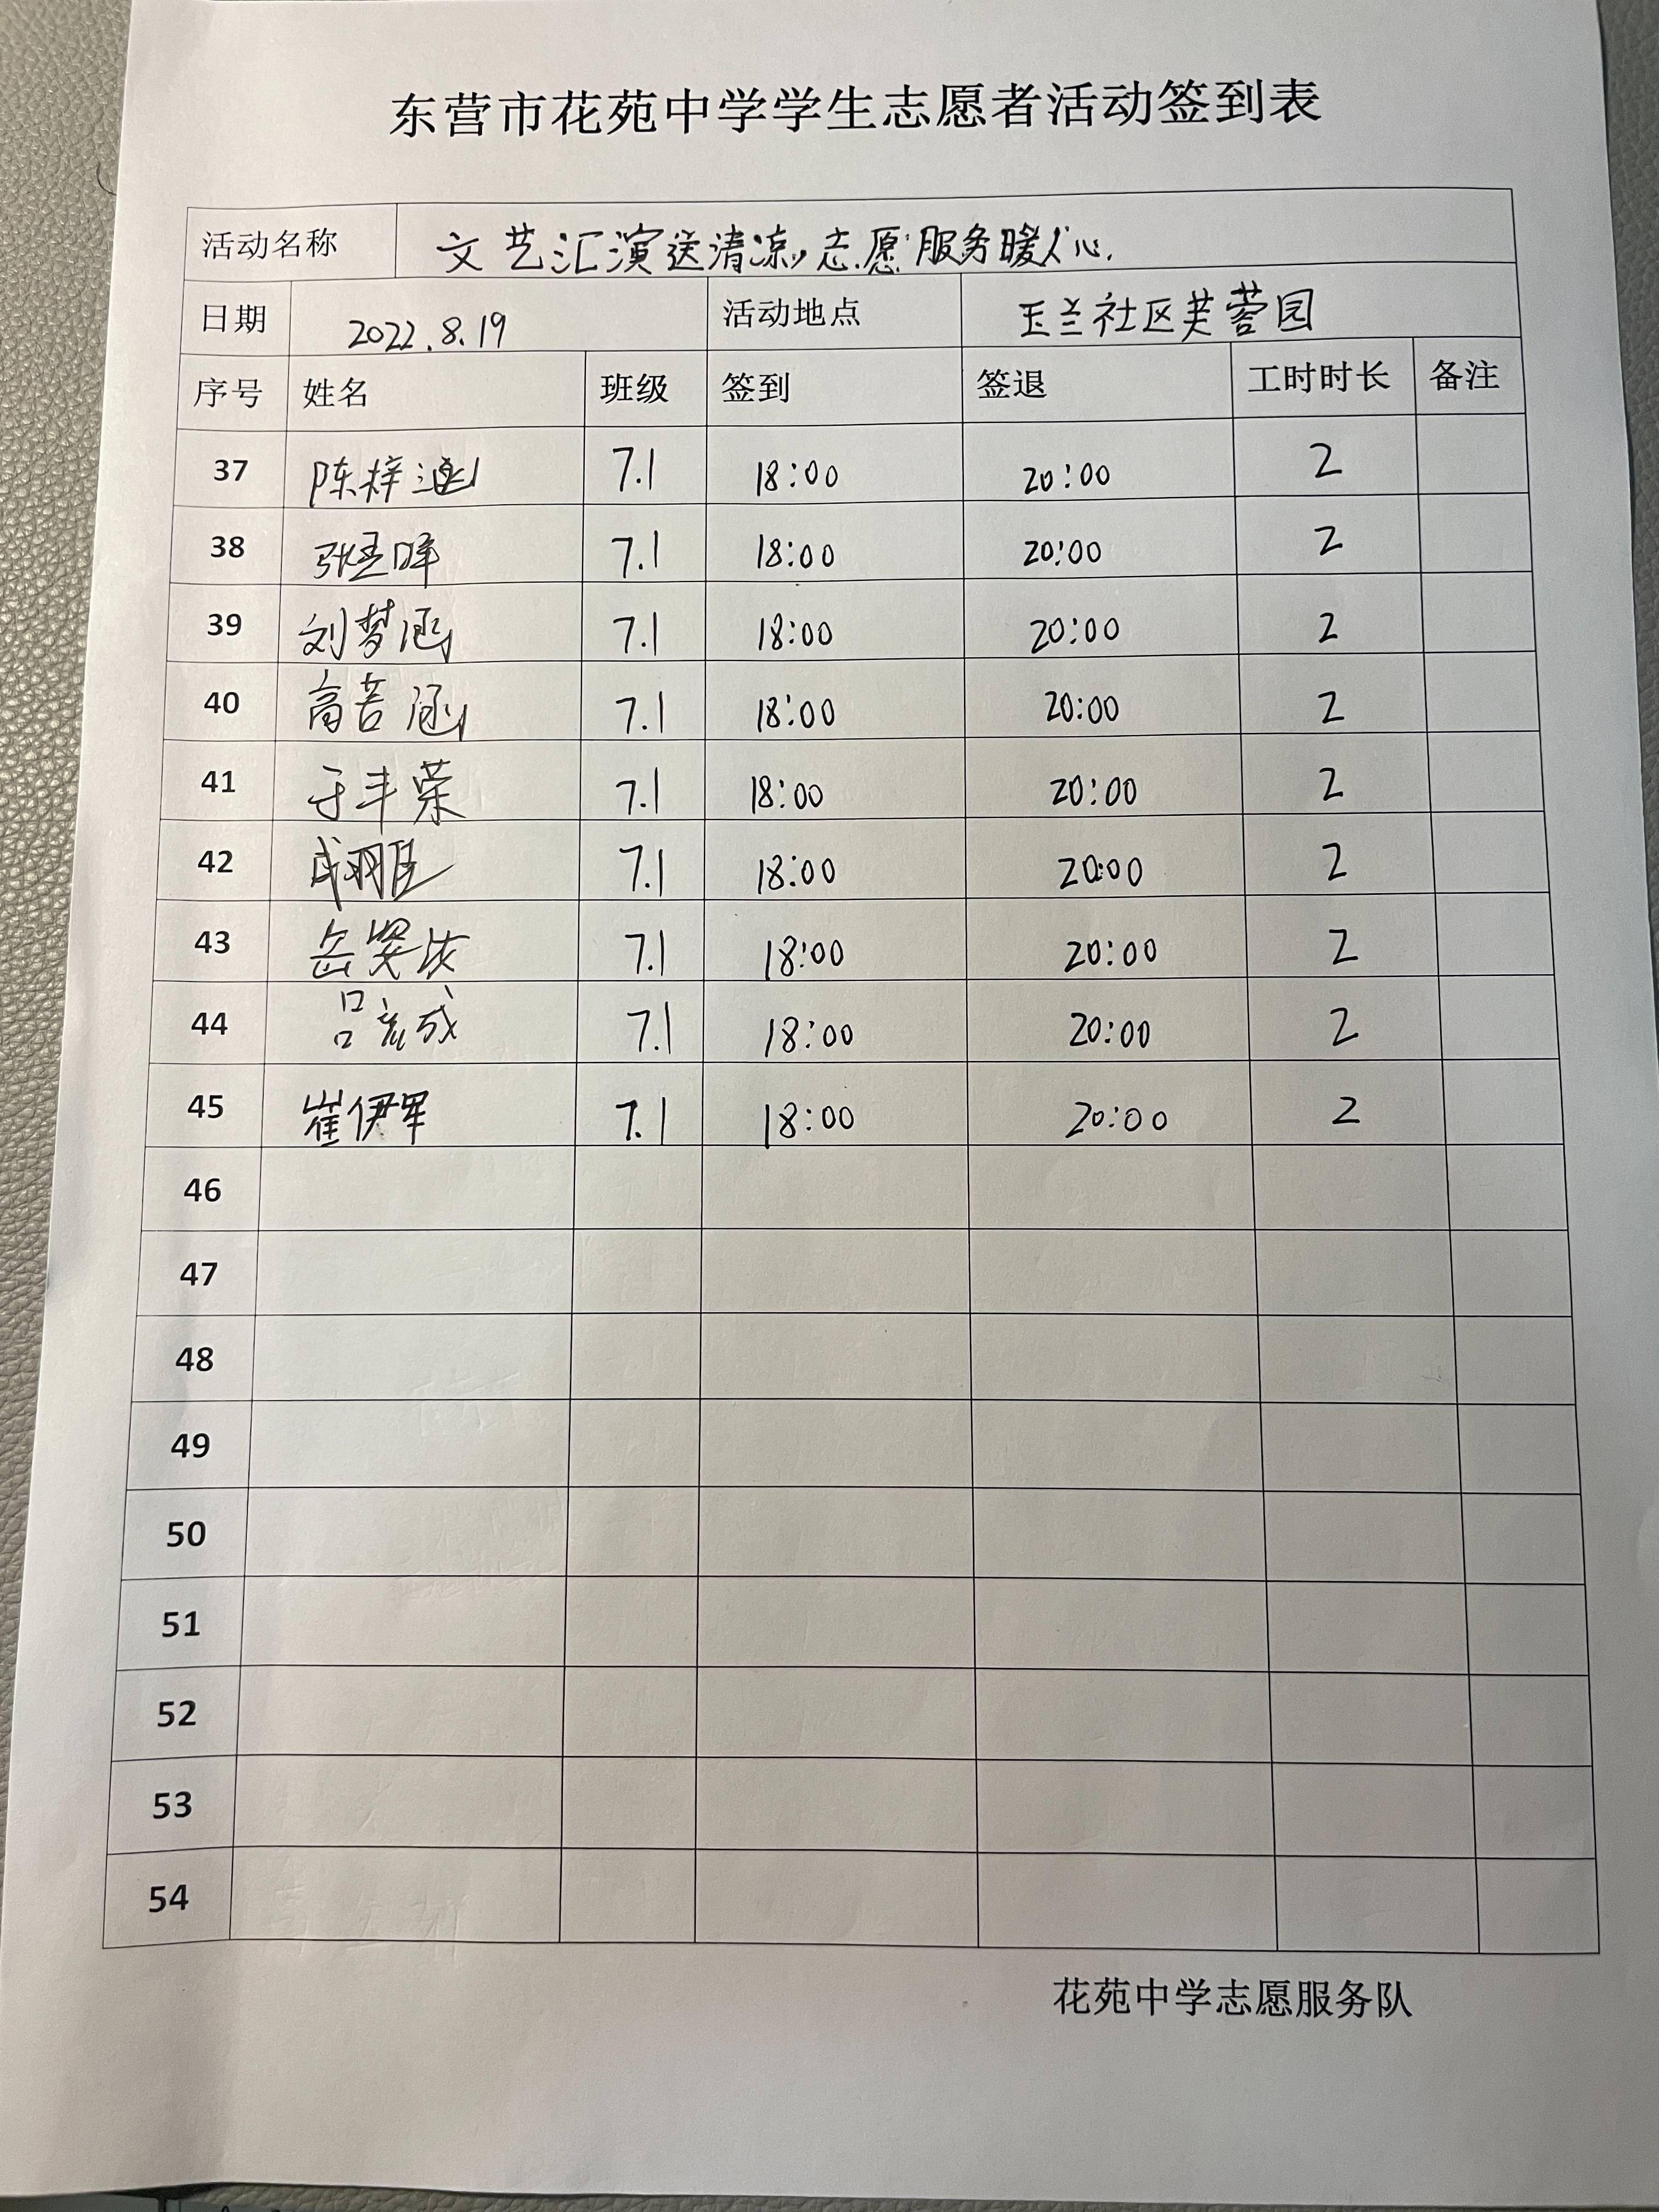 东营市花苑中学学生志愿者活动签到表
活动名称 文艺汇演送清凉,志愿服务暖人心.
日期 2022.8.19 活动地点 玉兰社区芙蓉园
序号 姓名 班级 签到 签退 工时时长 备注
37 陈梓涵 7.1 18:00 20:00 2
38 张 7.1 18:00 20:00 2
39 刘梦涵 7.1 18:00 20:00 2
40 高若涵 7.1 18:00 20:00 2
41 于丰荣 7.1 18:00 20:00 2
42 成 7.1 18:00 20:00 2
43 岳 7.1 18:00 20:00 2
44 吕 成 7.1 18:00 20:00 2
45 崔伊 7.1 18:00 20:00 2
46
47
48
49
50
51
52
53
54
花苑中学志愿服务队